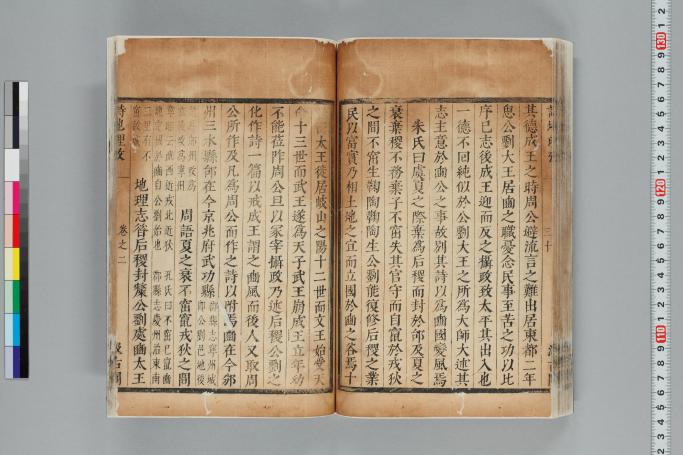 其德成王之時周公避流言之難出居東都二年
思公劉大王居豳之職憂念民事至苦之功以比
序己志後成王迎而反之攝政致太平其出入也
一德不回純似於公劉大王之所為大師大述其
志主意於豳公之事故別其詩以為豳國變風焉
朱氏曰虞夏之際棄為后稷而封於邰及夏之
衰棄稷不務棄子不窋失其官守而自竄於戎狄
之間不窋生鞠陶鞠陶生公劉能復修后稷之業
民以富實乃相土地之宜而立國於豳之谷焉十
大王徙居岐山之陽十二世而文王始受天
十三世而武王遂為天子武王崩成王立年幼
不能蒞阼周公旦以冢宰攝政乃述后稷公劉之
化作詩一篇以戒成王謂之豳風而後人又取周
公所作及凡為周公而作之詩以附焉豳在今邠
州三水縣邰在今京兆府武功縣
周語夏之衰不窋竄戎狄之間
地理志昔后稷封斄公劉處豳大王
詩地理攷
卷之二
汲古閣
130
120
110